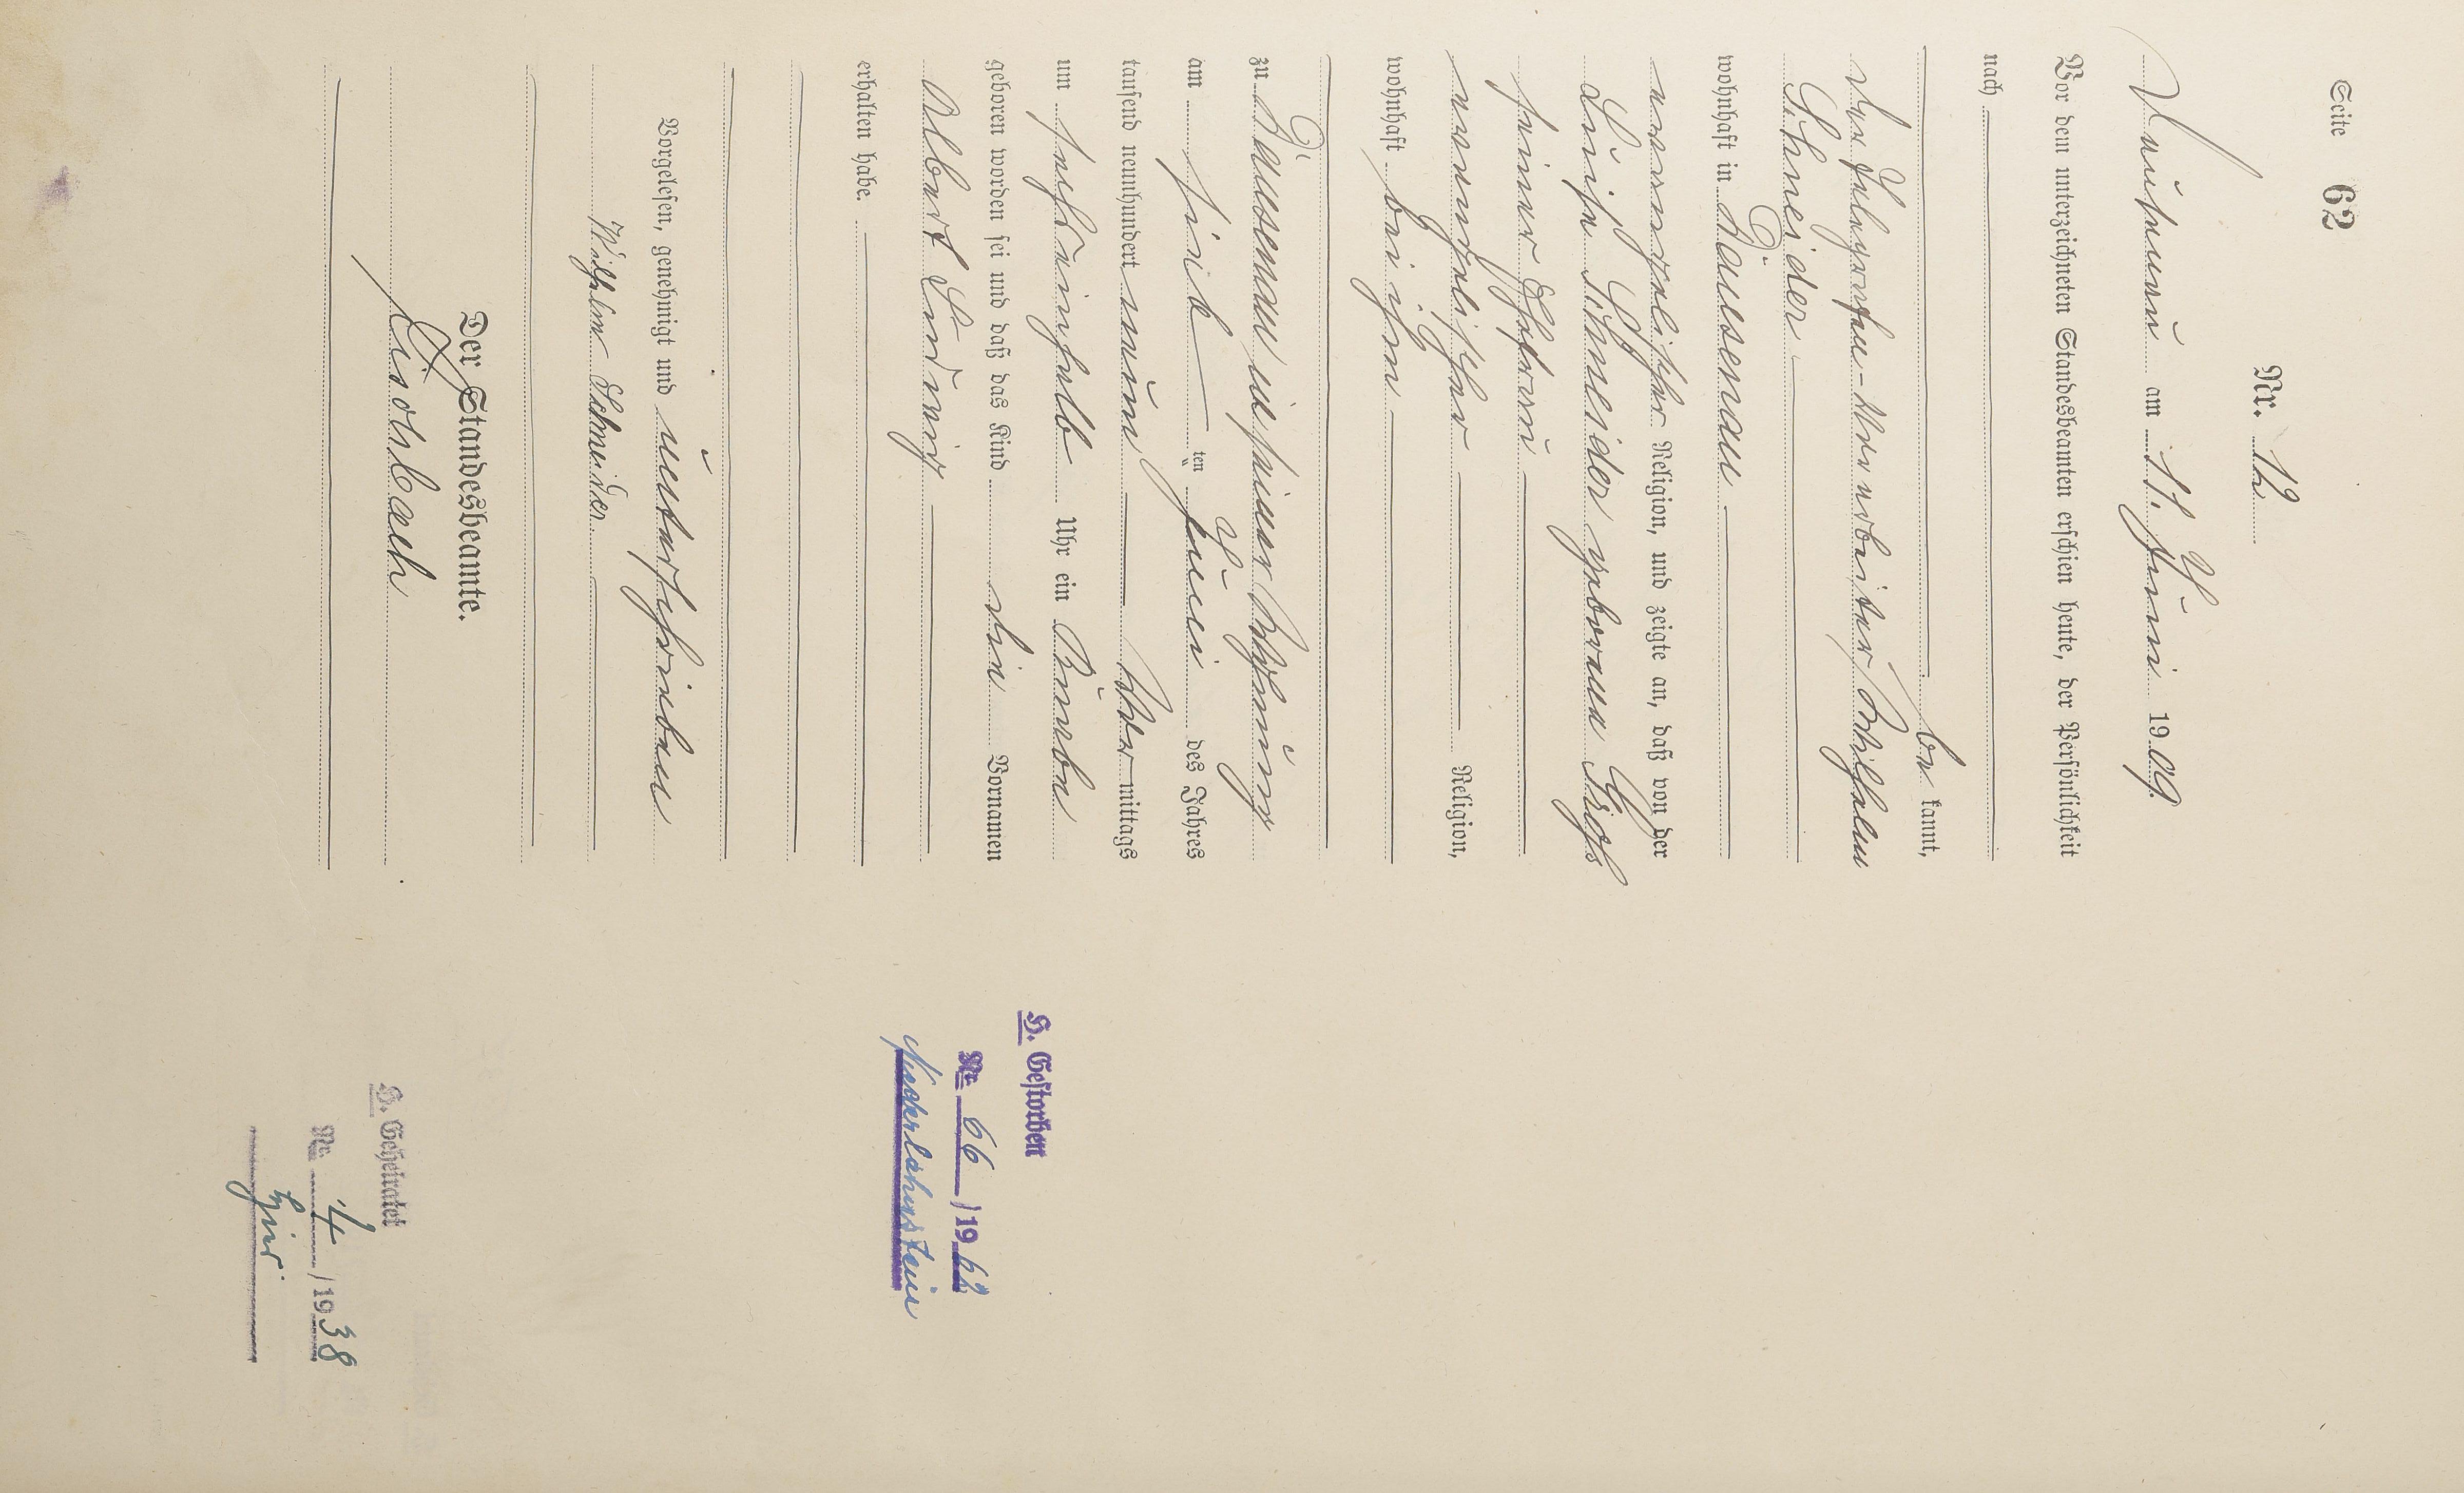 Seite 62
Nr. 12
Dausenau am 11. Juni 1909.
Vor dem unterzeichneten Standesbeamten erschien heute, der Persönlichkeit
nach
be kannt,
der Telegrafen-Vorarbeiter Wilhelm
Schneider
wohnhaft in Dausenau
evangelischer Religion, und zeigte an, daß von der
Luise Schneider geborene
seiner Ehefrau
evangelischer Religion,
wohnhaft bei ihm
zu Dausenau in seiner Wohnung
am fünf ten Juni des Jahres
tausend neunhundert neun Vor mittags
um sechseinhalb Uhr ein Knabe
geboren worden sei und daß das Kind die Vornamen
Albert Ludwig
erhalten habe.
Vorgelesen, genehmigt und unterschrieben
Wilhelm Schneider
Der Standesbeamte.
H. Gestorben
Nr. 66 /1962
Niederlahnstein
H. Geheiratet
Nr. 4 /1938
hier